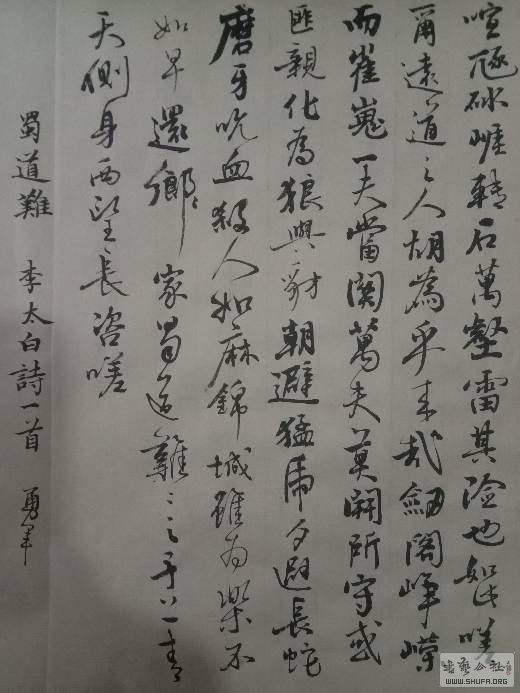 喧豗砯崖轉石萬壑雷其险也如此嗟
爾遠道之人胡為乎来哉劍閣崢嶸
而崔嵬一夫當関萬夫莫開所守或
匪親化為狼與豺朝避猛虎夕避長蛇
磨牙吮血殺人如麻錦城雖为樂不
如早還鄉家蜀道難〻之于上青
天側身西望長咨嗟
蜀道難 李太白詩一首 勇军
书艺公社
WWW.SHUFA.ORG